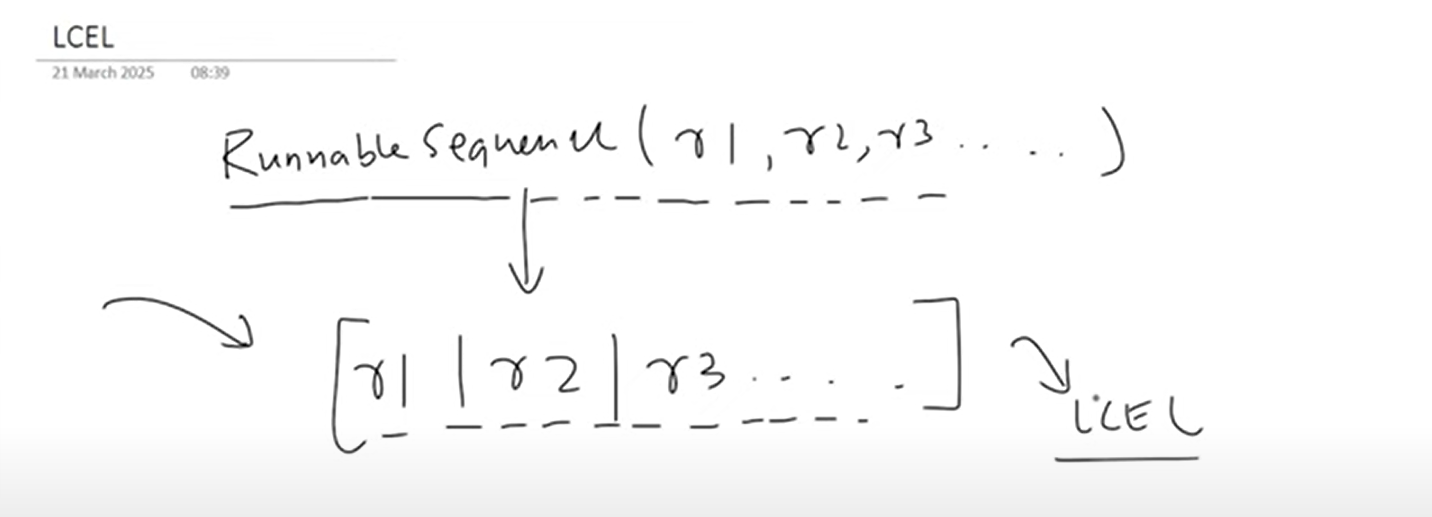 LCEL
21 March 2025 08:39
RunnableSequence(r1, r2, r3.. ...)
[r1 | r2 | r3.. . . .]
LCEL